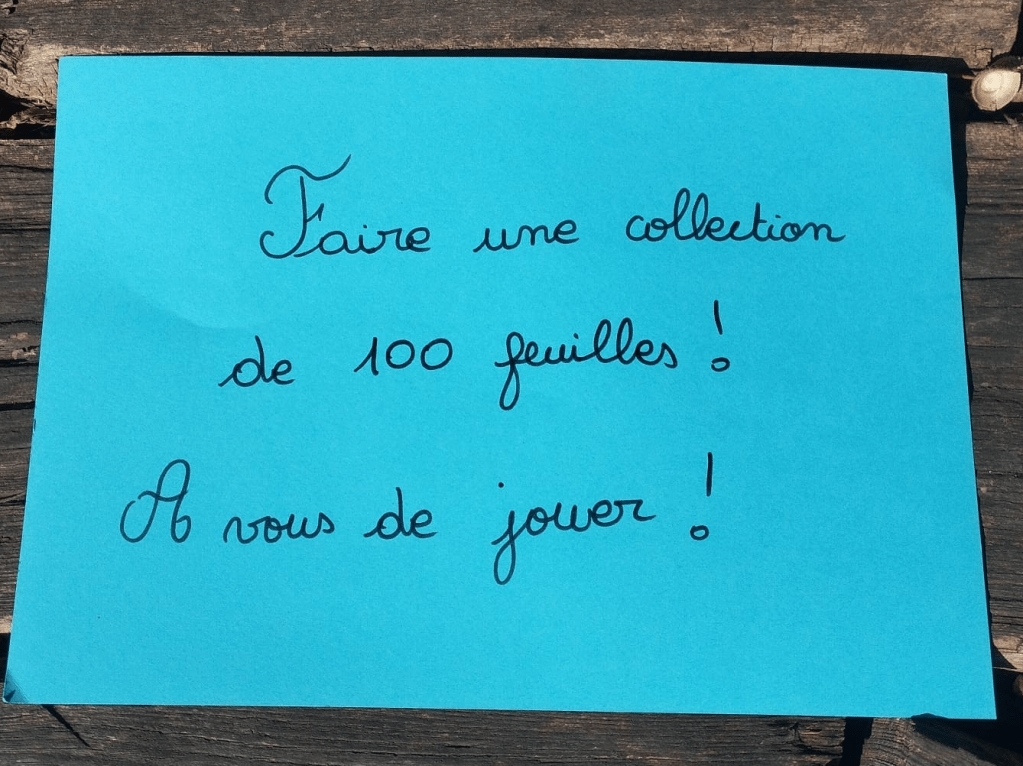 Faire une collection
de 100 feuilles !
A vous de jouer !